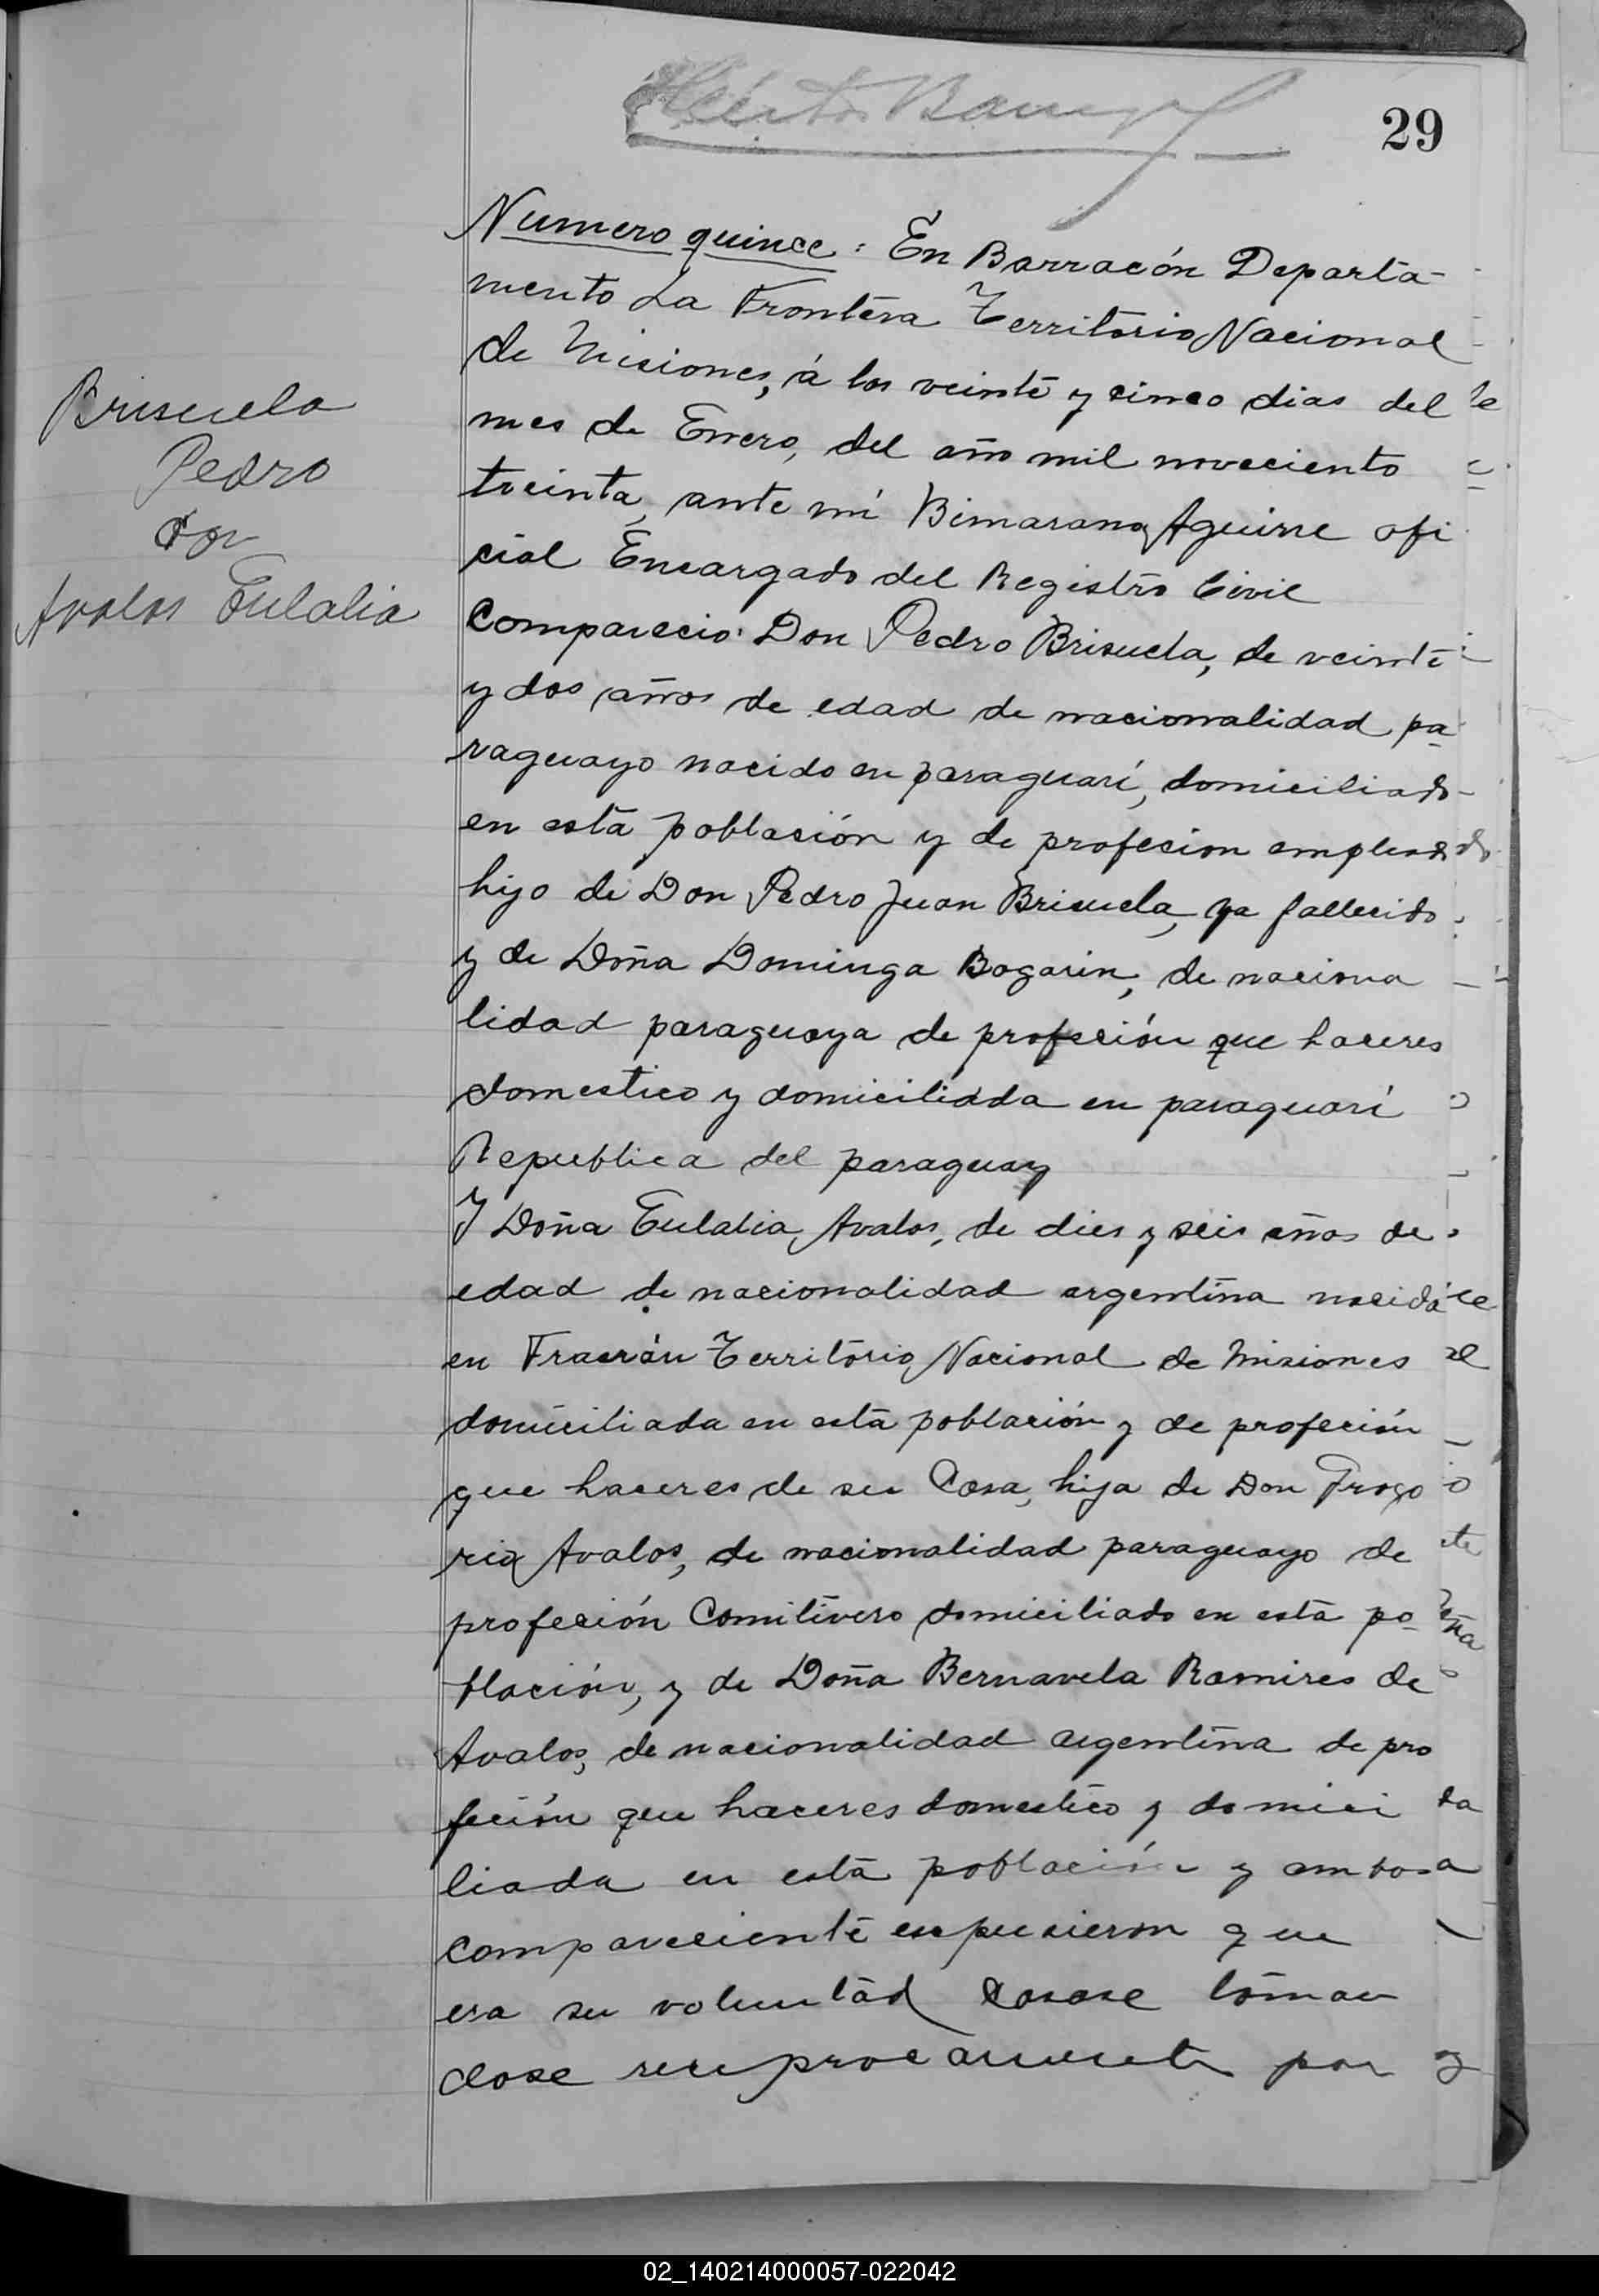 29
Numero quince: En Barracón Departa-
mento La Frontera Territorio Nacional
de Misiones, á los veinte y cinco dias del
mes de Enero, del año mil noveciento
treinta, ante mi Bimarano Aguirre ofi
cial Encargado del Registro Civil
Comparecio: Don Pedro Brisuela, de veinte
y dos años de edad de nacionalidad pa-
raguayo nacido en paraguari, domiciliado
en esta población y de profecion empleado
hijo de Don Pedro Juan Brisuela, ya fallecido
y de Doña Dominga Bogarin, de naciona
lidad paraguaya de profeción que haceres
domestico y domiciliada en paraguari
Republica del paraguay
Y Doña Eulalia Avalos, de dies y seis años de
edad de nacionalidad argentina nacida
en Fracrán Territorio Nacional de Misiones
domiciliada en esta población y de profeción
que haceres de su Casa, hija de Don
Avalos, de nacionalidad paraguayo de
profeción domiciliado en esta po-
blación, y de Doña Bernavela Ramires de
Avalos, de nacionalidad argentina de pro
feción que haceres domestico y domici
liada en esta población y ambos
compareciente expusieron que
era su voluntad casase toman
dose reciprocamente por
Brisuela
Pedro
con
Avalos Eulalia
02_140214000057-022042